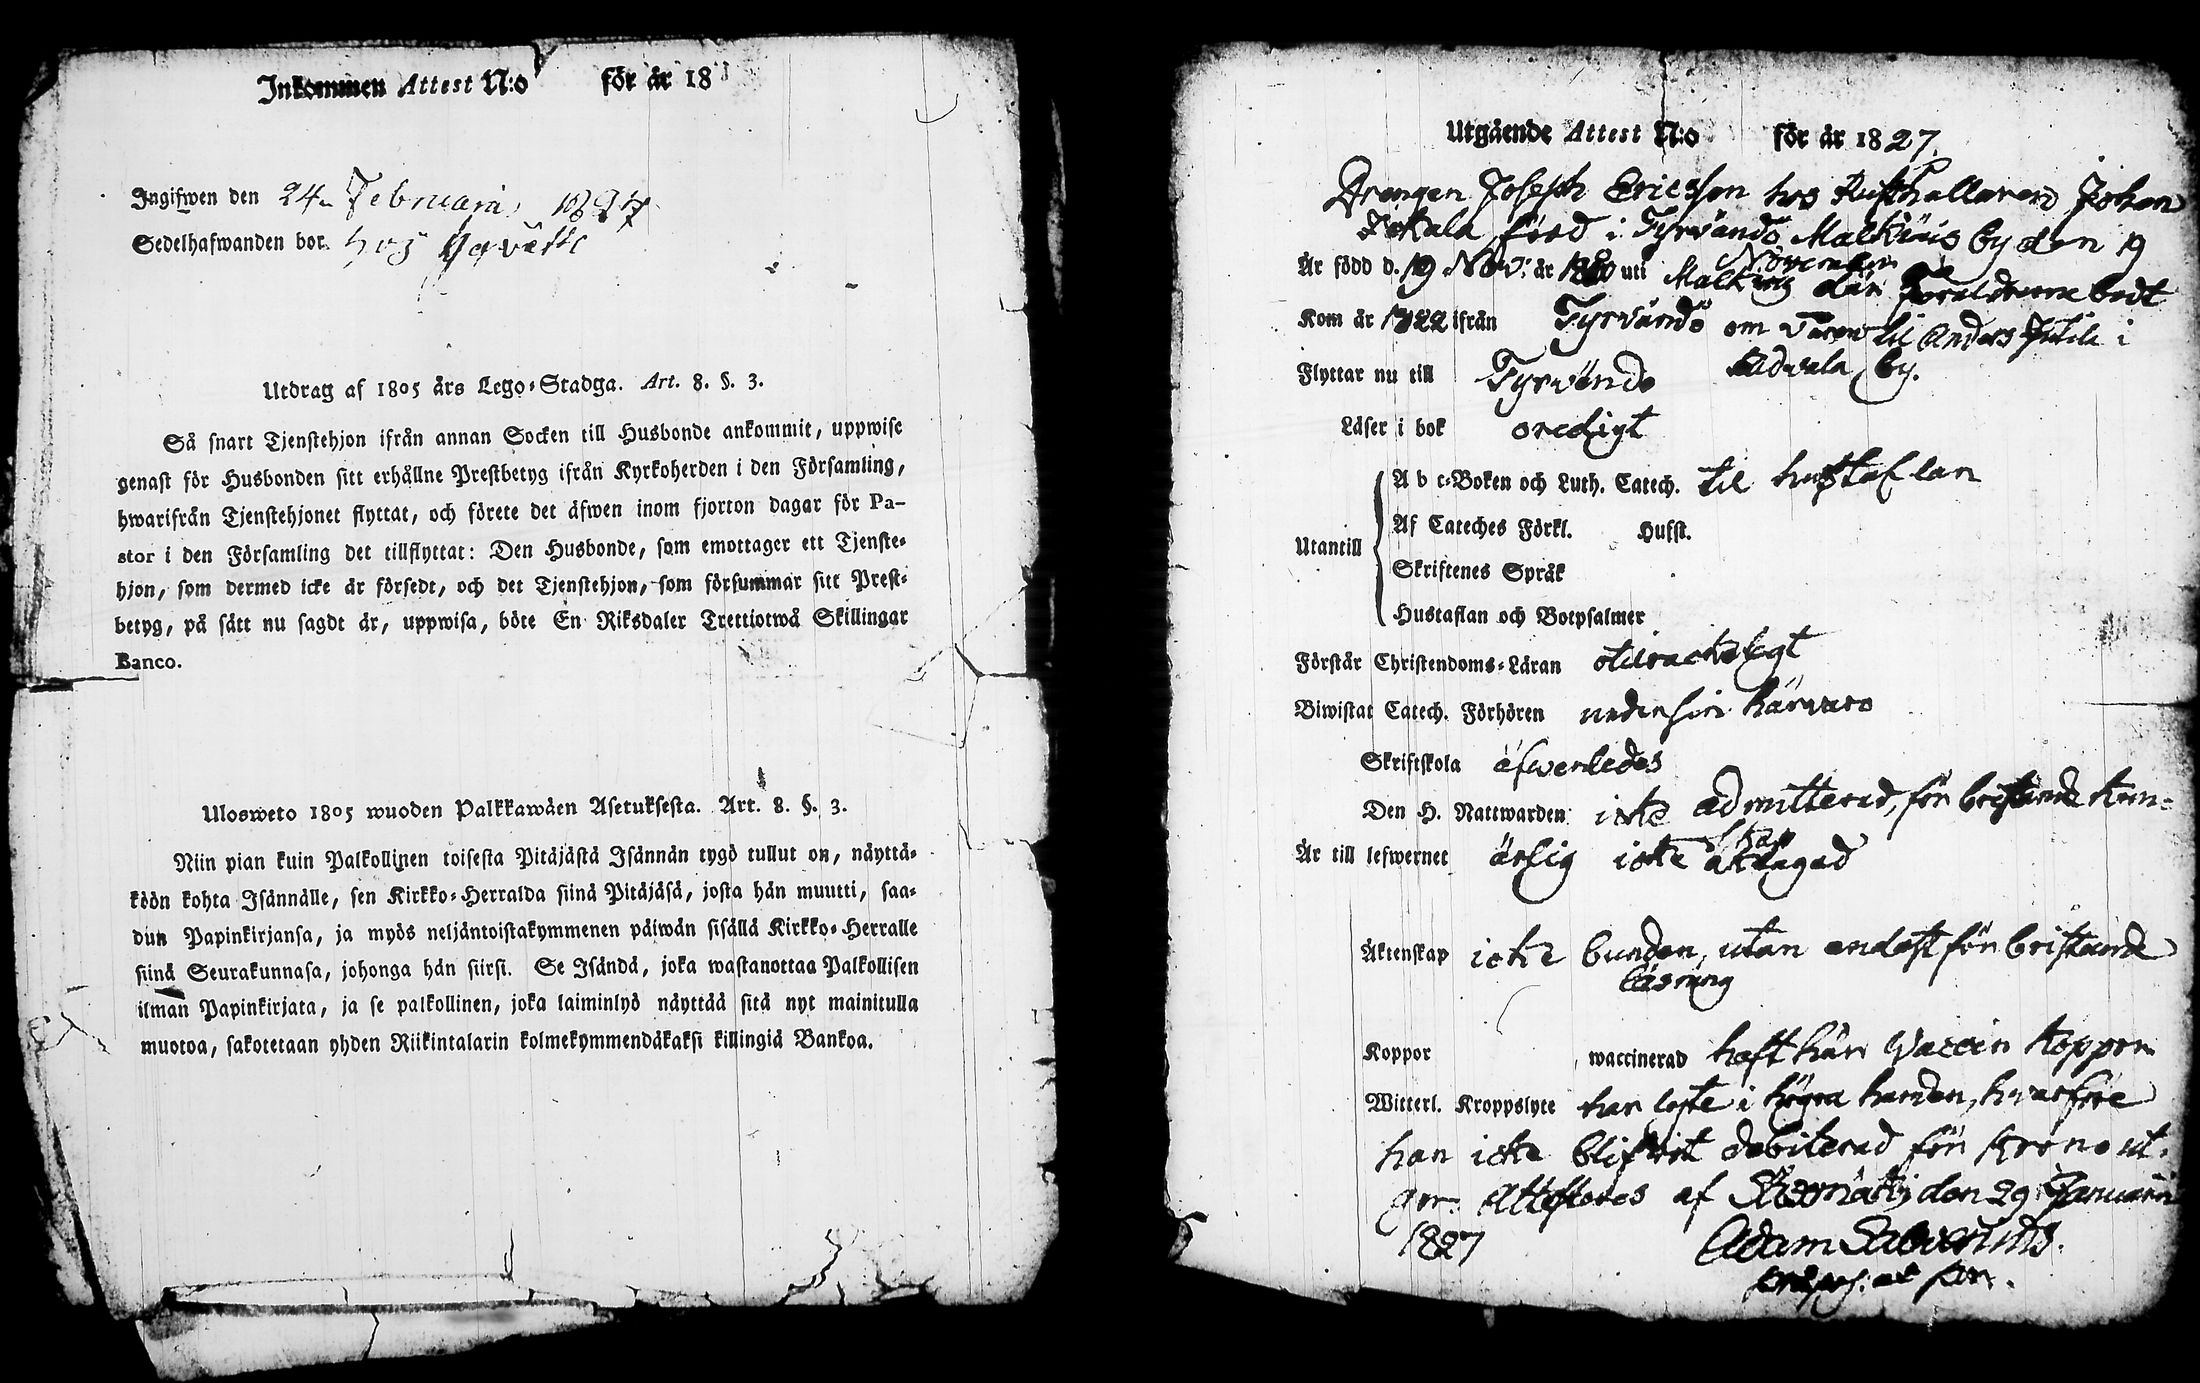 Inkommen Attest N:o för år 18
Ingifwen den 24 Februarii 1827
Sedelhafwanden bor. hos
Utdrag af 1805 års Lego-Stadga. Art. 8. §. 3.
Så snart Tjenstehjon ifrån annan Socken till Husbonde ankommit, uppwise
genast för Husbonden sitt erhållne Prestbetyg ifrån Kyrkoherden i den Församling,
hwarifrån Tjenstehjonet flyttat, och förete det äfwen inom fjorton dagar för Pa-
stor i den Församling det tillflyttat: Den Husbonde, som emottager ett Tjenste-
hjon, som dermed icke är försedt, och det Tjenstehjon, som försummar sitt Prest-
betyg, på sätt nu sagdt är, uppwisa, böte En Riksdaler Trettiotwå Skillingar
Banco.
Ulosweto 1805 wuoden Palkkawäen Asetuksesta. Art. 8. §. 3.
Niin pian kuin Palkollinen toisesta Pitäjästä Isännän tygö tullut on, näyttä-
köön kohta Isännälle, sen Kirkko-Herralda siinä Pitäjäsä, josta hän muutti, saa-
dun Papinkirjansa, ja myös neljäntoistakymmenen päiwän sisällä Kirkko-Herralle
siinä Seurakunnasa, johonga hän siirsi. Se Isändä, joka wastanottaa Palkollisen
ilman Papinkirjata, ja se palkollinen, joka laiminlyö näyttää sitä nyt mainitulla
muotoa, sakotetaan yhden Riikintalarin kolmekymmendäkaksi killingiä Bankoa.
Utgående Attest N:o för år 1827.
Drengen Joseph Ericsson hos Rusthållaren Johan
Jokala född i Tyrvändö Malkiäis by den 19
November
Är född d. 19 Nov: år 1800 uti Malkiäis där Föräldrarne bodt
Kom år 1822 ifrån Tyrvändö om våren til Anders Jutila i
Flyttar nu till Tyrvändö Adwala by.
Läser i bok oredigt
Utantill
A b c-Boken och Luth. Catech. til hustaflan
Af Cateches Förkl. Husst.
Skriftenes Språk
Hustaflan och Botpsalmer
Förstår Christendoms-Läran otilräckeligt
Biwistat Catech. Förhören under sin härvaro
Skriftskola äfwenledes
Den H. Nattwarden icke admitterad, för bristande kun-
skap
Är till lefwernet ärlig icke anklagad
Äktenskap icke bunden, utan endast för bristande
läsning
Koppor waccinerad haft här Vaccin koppor
Witterl. Kroppslyte har lyte i högra handen, hvarföre
han icke blifvit debiterad för Krono ut-
gr. Attesteres af den 29 Januarii
1827 Adam